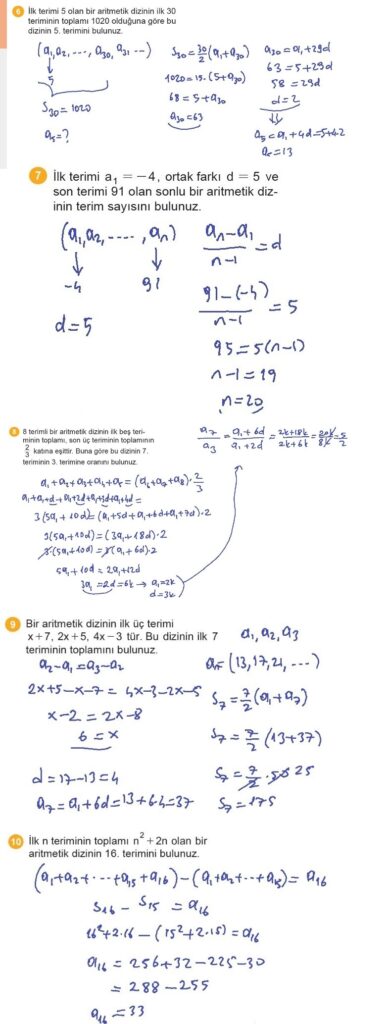 6 İlk terimi 5 olan bir aritmetik dizinin ilk 30
teriminin toplamı 1020 olduğuna göre bu
dizinin 5. terimini bulunuz.
(a₁,a₂, ---, a₃₀, a₃₁ ---)
5
S₃₀=1020
a₅=?
S₃₀=30/2(a₁+a₃₀)
1020=15.(5+a₃₀)
68=5+a₃₀
a₃₀=63
a₃₀=a₁+29d
63=5+29d
58=29d
d=2
a₅=a₁+4d=5+4.2
a₅=13
7 İlk terimi a₁ = −4, ortak farkı d = 5 ve
son terimi 91 olan sonlu bir aritmetik diz-
inin terim sayısını bulunuz.
(a₁,a₂, ----, aₙ)
-4 91
d=5
(aₙ-a₁)/(n-1)=d
(91-(-4))/(n-1)=5
95=5(n-1)
n-1=19
n=20
8 8 terimli bir aritmetik dizinin ilk beş teri-
minin toplamı, son üç teriminin toplamının
2/3 katına eşittir. Buna göre bu dizinin 7.
teriminin 3. terimine oranını bulunuz.
a₁+a₂+a₃+a₄+a₅=(a₆+a₇+a₈).2/3
a₁+a₁+d+a₁+2d+a₁+3d+a₁+4d=
3(5a₁+10d)=(a₁+5d+a₁+6d+a₁+7d).2
3(5a₁+10d)=(3a₁+18d).2
3.(5a₁+10d)=3(a₁+6d).2
5a₁+10d=2a₁+12d
3a₁=2d=6k→a₁=2k
d=3k
a₇/a₃=(a₁+6d)/(a₁+2d)=(2k+18k)/(2k+6k)=20k/8k=5/2
9 Bir aritmetik dizinin ilk üç terimi
x+7, 2x+5, 4x−3 tür. Bu dizinin ilk 7
teriminin toplamını bulunuz.
a₂-a₁=a₃-a₂
2x+5-x-7=4x-3-2x-5
x-2=2x-8
6=x
d=17-13=4
a₇=a₁+6d=13+6.4=37
a₁,a₂,a₃
(13,17,21,---)
S₇=7/2(a₁+a₇)
S₇=7/2(13+37)
S₇=7/2.50 25
S₇=175
10 İlk n teriminin toplamı n²+2n olan bir
aritmetik dizinin 16. terimini bulunuz.
(a₁+a₂+---+a₁₅+a₁₆)-(a₁+a₂+--+a₁₅)=a₁₆
S₁₆-S₁₅=a₁₆
16²+2.16-(15²+2.15)=a₁₆
a₁₆=256+32-225-30
=288-255
a₁₆=33